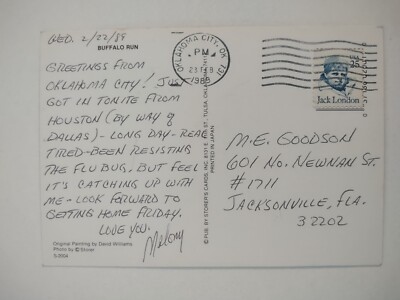 WED. 2/22/89
BUFFALO RUN
GREETINGS FROM
OKLAHOMA CITY! JUST
GOT IN TONITE FROM
HOUSTON (BY WAY OF
DALLAS) - LONG DAY - REAL
TIRED - BEEN RESISTING
THE FLU BUG, BUT FEEL
IT'S CATCHING UP WITH
ME - LOOK FORWARD TO
GETTING HOME FRIDAY.
LOVE YOU,
Original Painting by David Williams
Photo by © Storer
© PUB. BY STORER'S CARDS, INC. 8101 E. ST., TULSA, OKLAHOMA
PRINTED IN JAPAN
OKLAHOMA CITY, OK
PM
1989
25
Jack London
M.E. GOODSON
601 NO. NEWNAN ST.
#1711
JACKSONVILLE, FLA.
32202